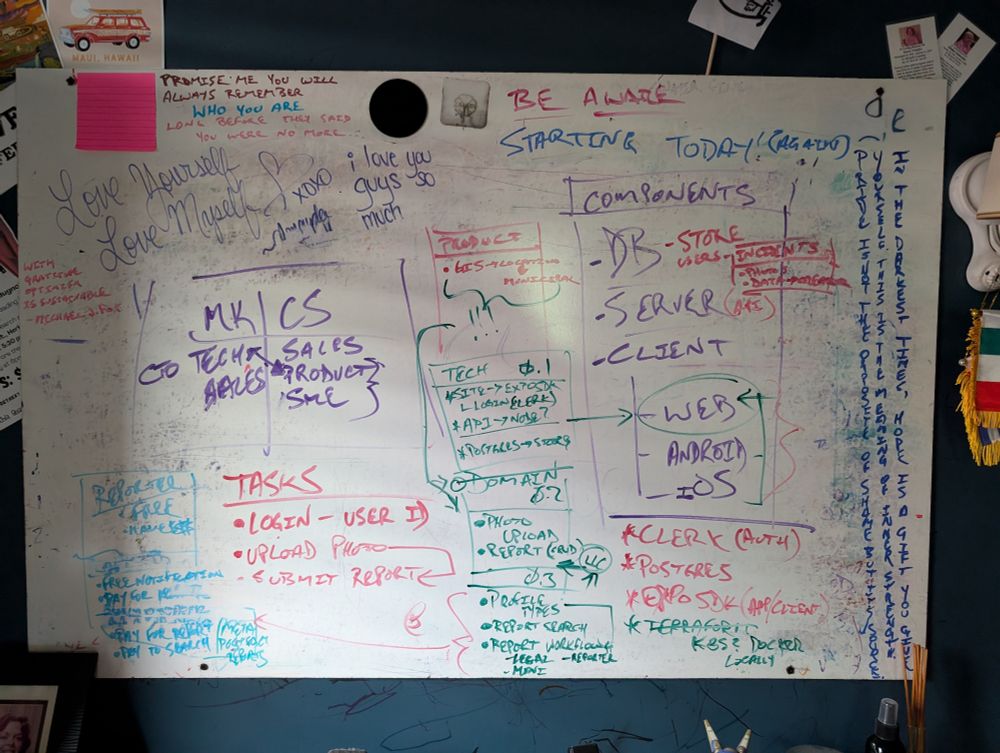 MAUI, HAWAII
PROMISE ME YOU WILL
ALWAYS REMEMBER
WHO YOU ARE
LONG BEFORE THEY SAID
YOU WERE NO MORE...
BE AWARE
STARTING TODAY! (AGAIN)
Love Yourself
Love Myself
XOXO
i love you
guys so
much
WITH
GRATITUDE
OPTIMISM
IS SUSTAINABLE
- MICHAEL J. FOX
MK CS
CTO TECH SALES
SALES PRODUCT
SME
PRODUCT
• GIS → LOCATION
& MUNICIPAL
!!!
COMPONENTS
- DB - STORE
USERS - INCIDENTS
• PHOTOS
• DATA
- SERVER (API)
- CLIENT
- WEB
- ANDROID
- iOS
TECH 0.1
* SITE → EXPO SDK
LOGIN (CLERK)
* API → NODE?
* POSTGRES → STORE
DOMAIN
0.2
• PHOTO
UPLOAD
• REPORT (CRUD)
0.3
• PROFILE
TYPES
• REPORT SEARCH
• REPORT WORKFLOW
- LEGAL - REPORTER
- MUNI
TASKS
• LOGIN - USER ID
• UPLOAD PHOTO
- SUBMIT REPORT
REPORTER
FREE
• FREE NOTIFICATION
• PAY FOR
• PAY FOR REPORT
• PAY TO SEARCH
* CLERK (AUTH)
* POSTGRES
* EXPO SDK (APP/CLIENT)
* TERRAFORM
K8S? DOCKER
LOCALLY
IN THE DARKEST TIMES, HOPE IS A GIFT YOU GIVE
YOURSELF. THIS IS THE MEANING OF INNER STRENGTH
PRIDE IS NOT THE OPPOSITE OF SHAME BUT ITS SOURCE.